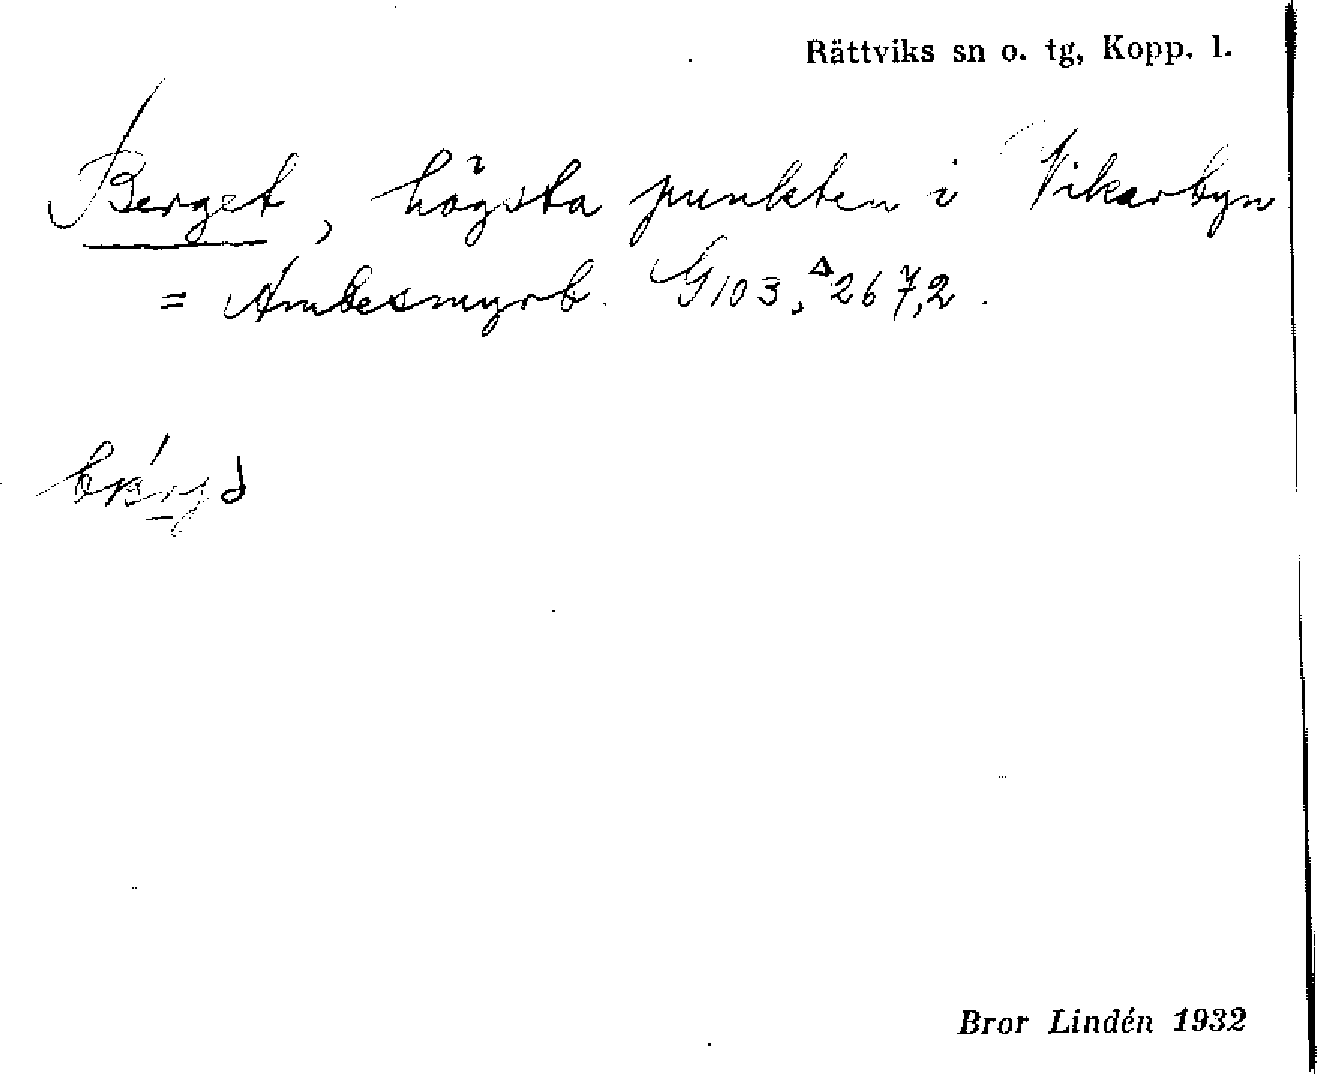 Rättviks sn o. tg, Kopp. l.
Berget, högsta punkten i Vikarbyn
= Ambesmyrb. G103, ᐃ267,2.
Bror Lindén 1932